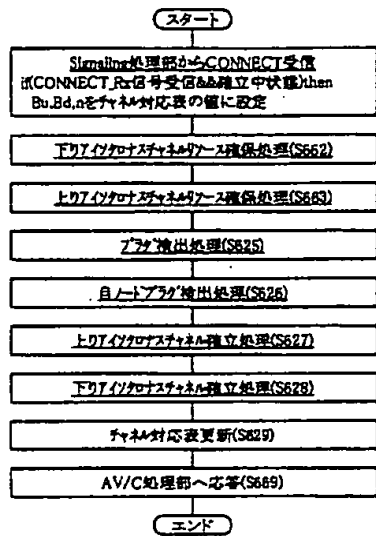 スタート
Signaling処理部からCONNECT受信
if(CONNECT_Rx信号受信&&確立中状態)then
Bu,Bd,nをチャネル対応表の値に設定
下りアイソクロナスチャネルリソース確保処理(S662)
上りアイソクロナスチャネルリソース確保処理(S663)
プラグ検出処理(S625)
自ノードプラグ検出処理(S626)
上りアイソクロナスチャネル確立処理(S627)
下りアイソクロナスチャネル確立処理(S628)
チャネル対応表更新(S629)
AV/C処理部へ応答(S669)
エンド